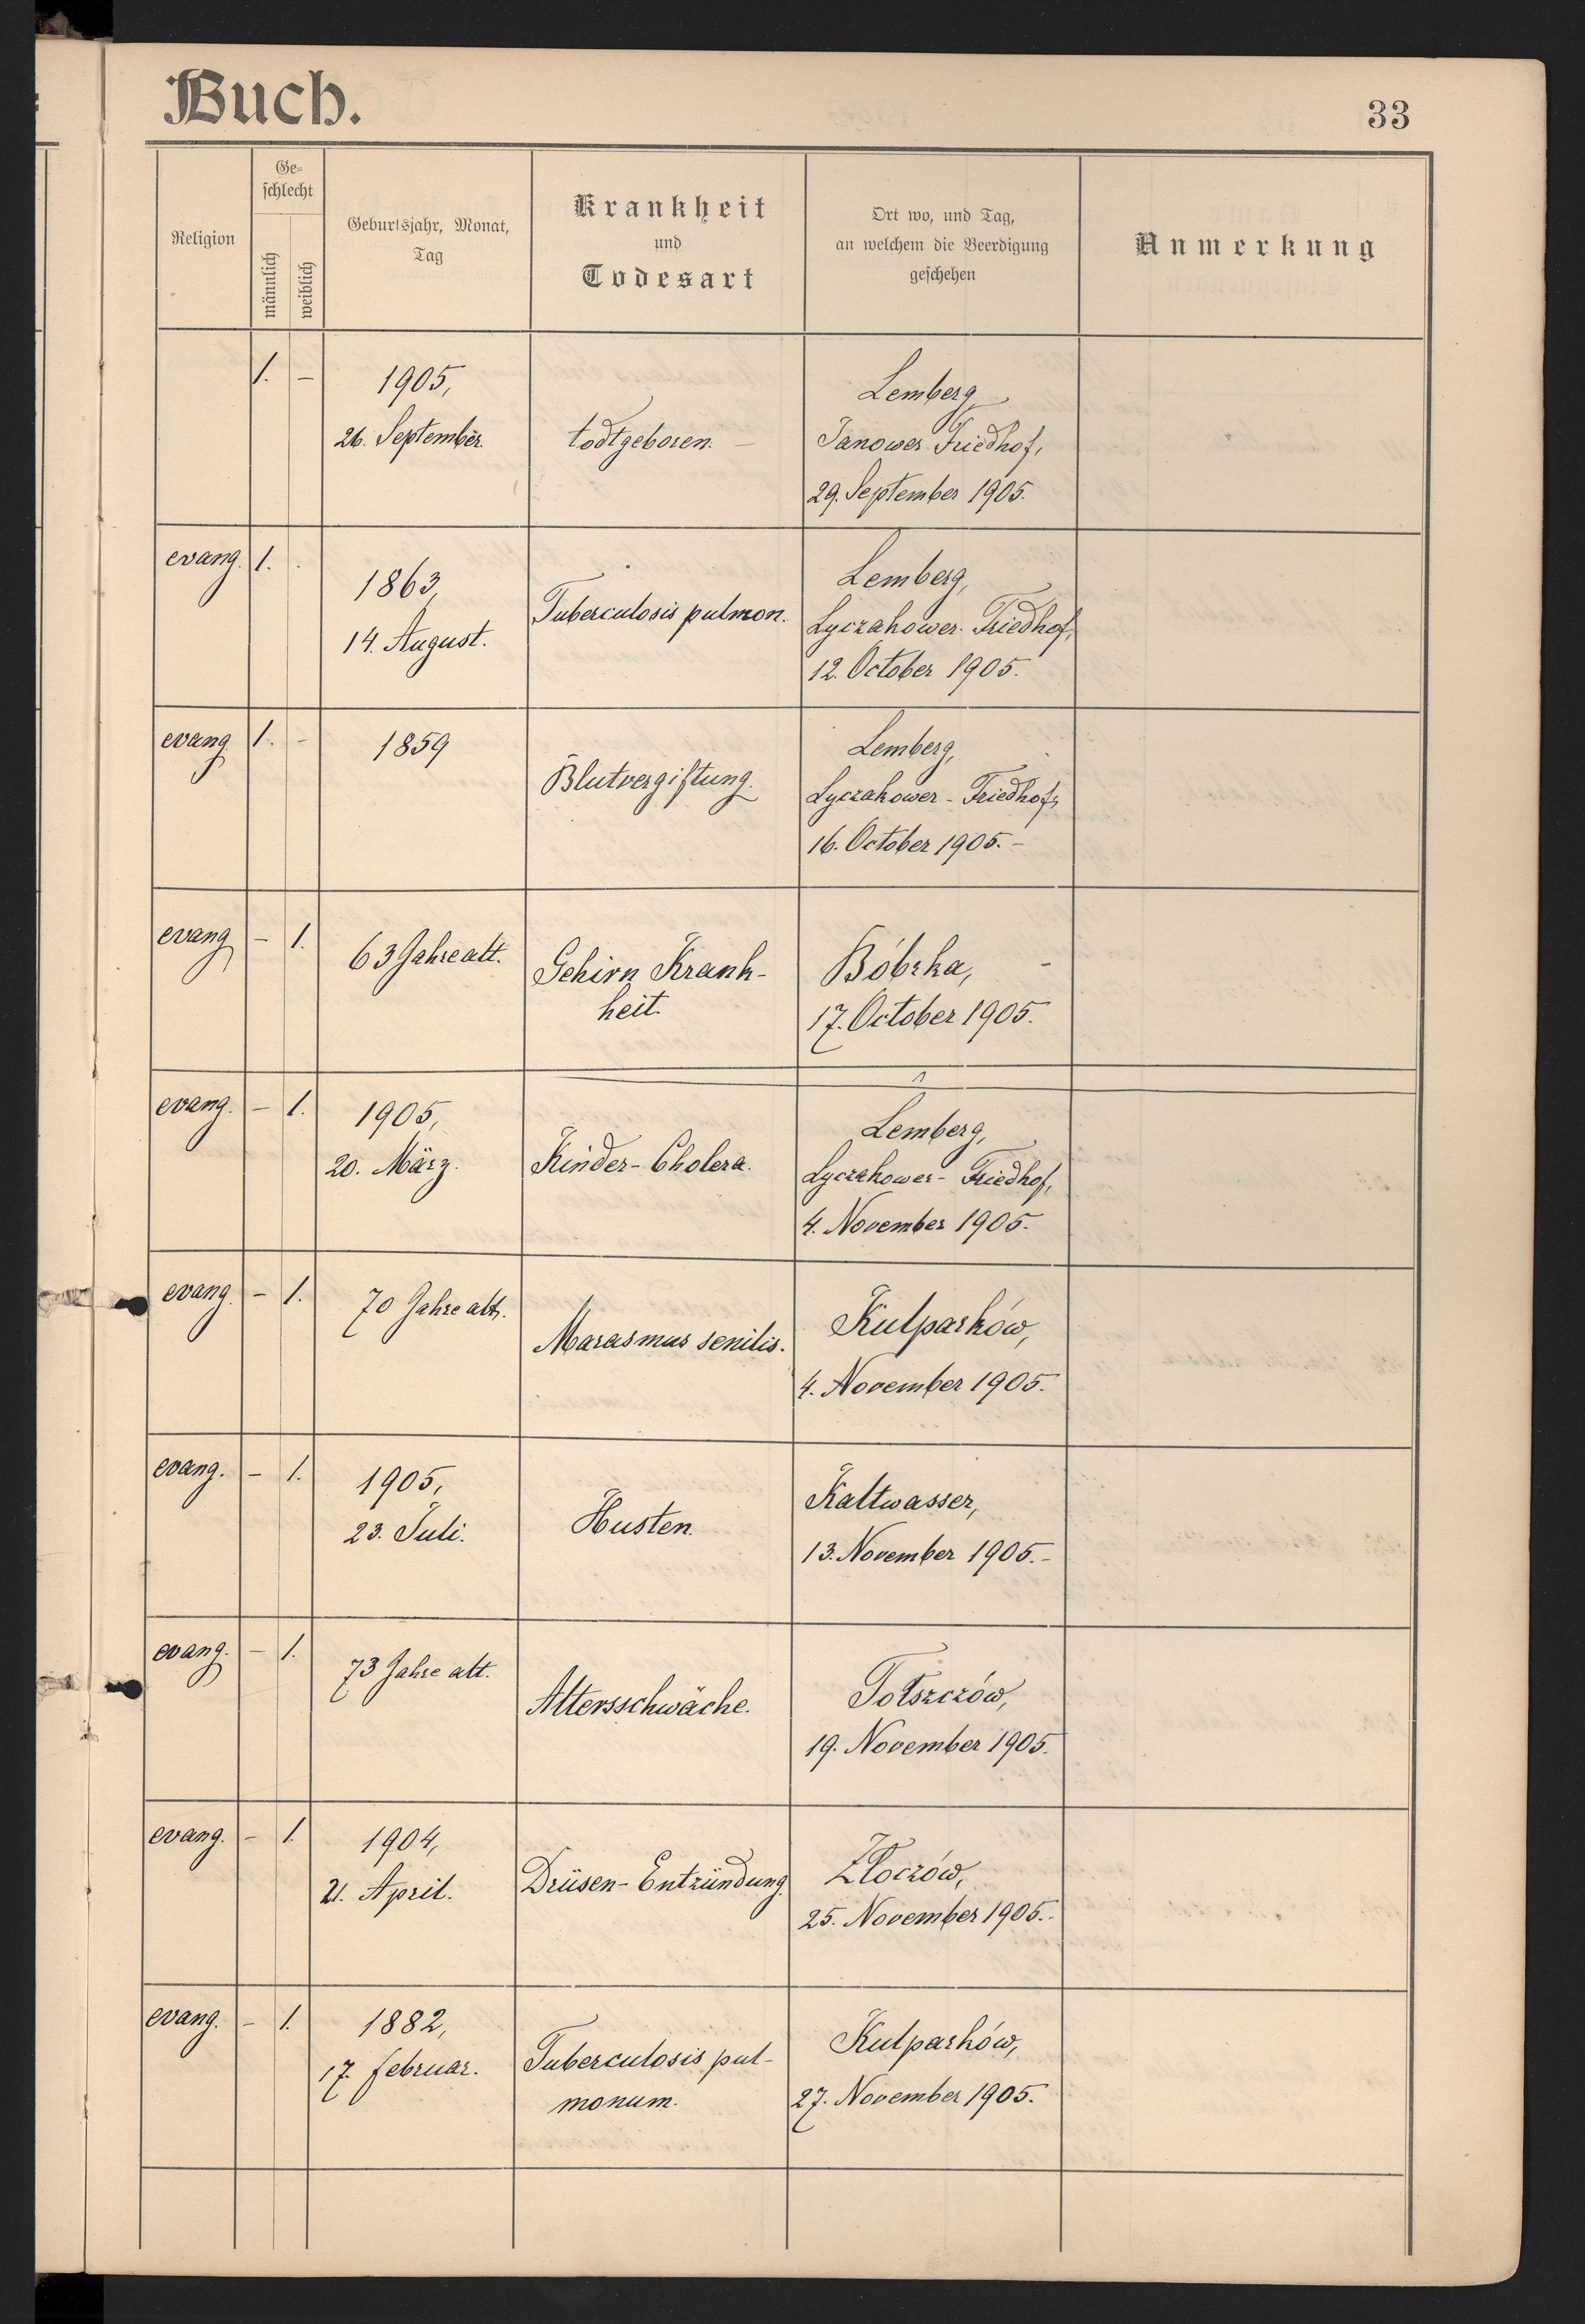 Buch.
33
Religion
Ge-
schlecht
männlich
weiblich
Geburtsjahr, Monat,
Tag
Krankheit
und
Todesart
Ort wo, und Tag,
an welchem die Beerdigung
geschehen
Anmerkung
1. –
1905,
26. September.
todtgeboren. –
Lemberg
Janower Friedhof,
29. September 1905.
evang. 1.
1863,
14. August.
Tuberculosis pulmon.
Lemberg,
Lyczakower-Friedhof,
12. October 1905.
evang. 1. –
1859
Blutvergiftung.
Lemberg,
Lyczakower-Friedhof,
16. October 1905. –
evang. – 1.
63 Jahre alt.
Gehirn Krank-
heit.
Bóbrka, –
17. October 1905.
evang. – 1.
1905,
20. März.
Kinder-Cholera.
Lemberg,
Lyczakower-Friedhof,
4. November 1905.
evang. – 1.
70 Jahre alt.
Marasmus senilis.
Kulparków,
4. November 1905.
evang. – 1.
1905,
23. Juli.
Husten.
Kaltwasser,
13. November 1905. –
evang. – 1.
73 Jahre alt.
Altersschwäche.
Tołszczów,
19. November 1905.
evang. – 1.
1904,
21. April.
Drüsen-Entzündung.
Złoczów,
25. November 1905.
evang. – 1.
1882,
17. februar.
Tuberculosis pul-
monum.
Kulparków,
27. November 1905.